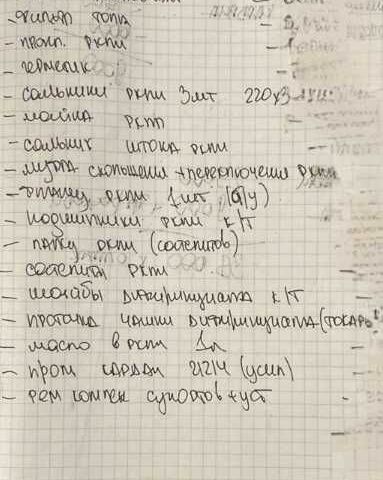 - фильтр топл
- прокл. ркпп
- герметик
- сальники ркпп 3шт 220х3
- мойка ркпп
- сальник штока ркпп
- муфта скольжения + переключение ркпп
- ркпп 1шт (б/у)
- подшипники ркпп к/т
- ркпп (сателитов)
- сателиты ркпп
- шайбы дифференциала к/т
- проточка чашки дифференциала (токарь
- масло в ркпп 1л
- пром кардан 21214 (усил)
- рем компек супортов + уст